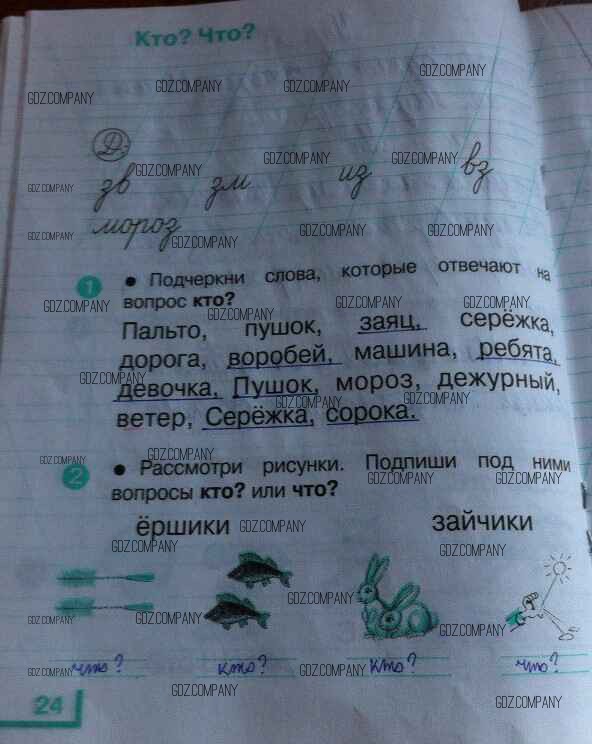 Кто? Что?
GDZ.COMPANY GDZ.COMPANY GDZ.COMPANY GDZ.COMPANY
Д.
GDZ.COMPANY GDZ.COMPANY GDZ.COMPANY GDZ.COMPANY
зв зм из вз
мороз
GDZ.COMPANY GDZ.COMPANY GDZ.COMPANY GDZ.COMPANY
1 • Подчеркни слова, которые отвечают на
вопрос кто?
GDZ.COMPANY GDZ.COMPANY GDZ.COMPANY GDZ.COMPANY
Пальто, пушок, заяц, серёжка,
дорога, воробей, машина, ребята,
GDZ.COMPANY GDZ.COMPANY GDZ.COMPANY
девочка, Пушок, мороз, дежурный,
ветер, Серёжка, сорока.
GDZ.COMPANY GDZ.COMPANY GDZ.COMPANY GDZ.COMPANY
2 • Рассмотри рисунки. Подпиши под ними
вопросы кто? или что?
ёршики GDZ.COMPANY зайчики
GDZ.COMPANY GDZ.COMPANY
GDZ.COMPANY GDZ.COMPANY GDZ.COMPANY GDZ.COMPANY
что? кто? кто? что?
GDZ.COMPANY GDZ.COMPANY GDZ.COMPANY GDZ.COMPANY
24